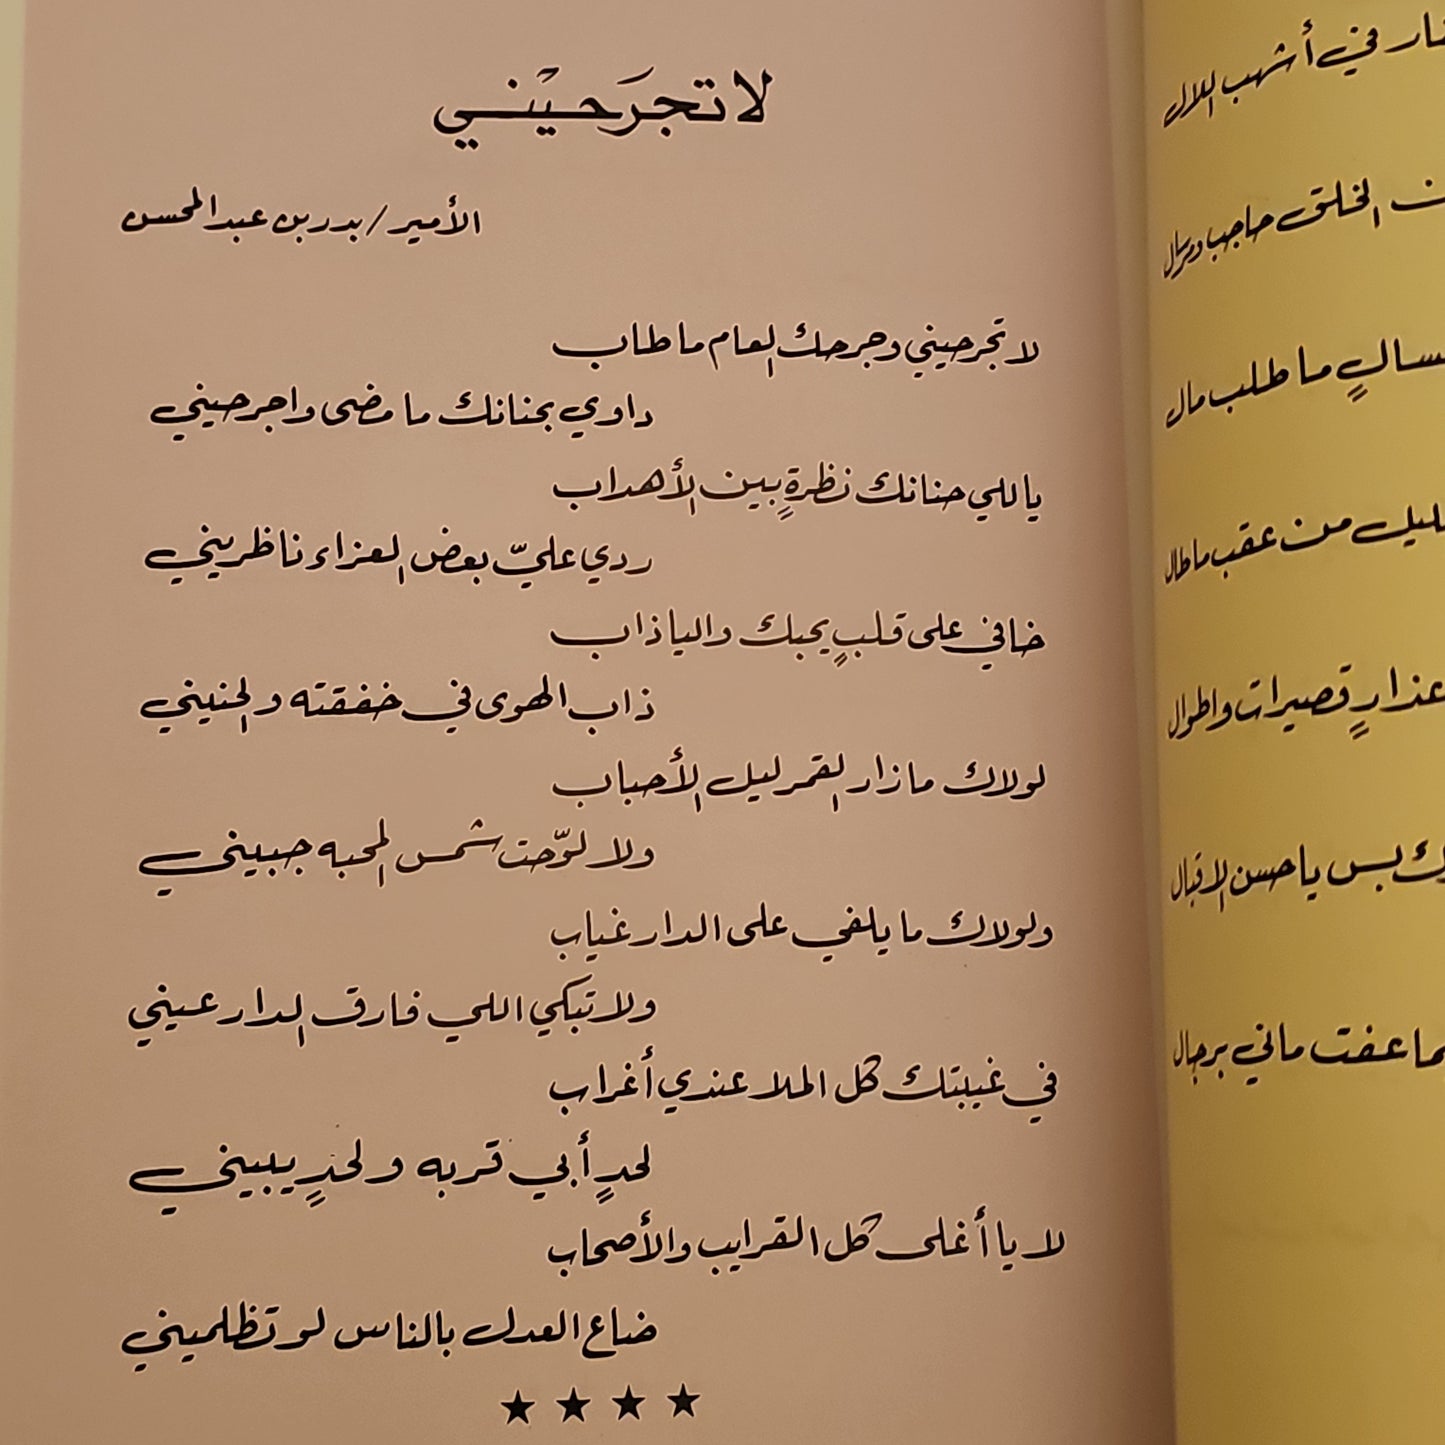 لا تجرَحيْني
الأمير / بدر بن عبدالمحسن
لا تجرحيني وجرحك العام ما طاب
داوي بحنانك ما مضى واجرحيني
يا للي حنانك نظرةٍ بين الأهداب
ردي عليّ بعض العزاء ناظريني
خافي على قلبٍ يحبك واليا ذاب
ذاب الهوى في خفقته والحنيني
لولاك ما زار القمر ليل الأحباب
ولا لوّحت شمس المحبه جبيني
ولولاك ما يلفي على الدار غياب
ولا تبكي اللي فارق الدار عيني
في غيبتك كل الملا عندي أغراب
لحدٍ أبي قربه ولحدٍ يبيني
لا يا أغلى كل القرايب والأصحاب
ضاع العدل بالناس لو تظلميني
في أشهب اللال
الخلق حاجب ومرسال
ما طلب مال
من عقب ما طال
قصيرات واطوال
بس يا حسن الاقبال
عفت ماني برجال